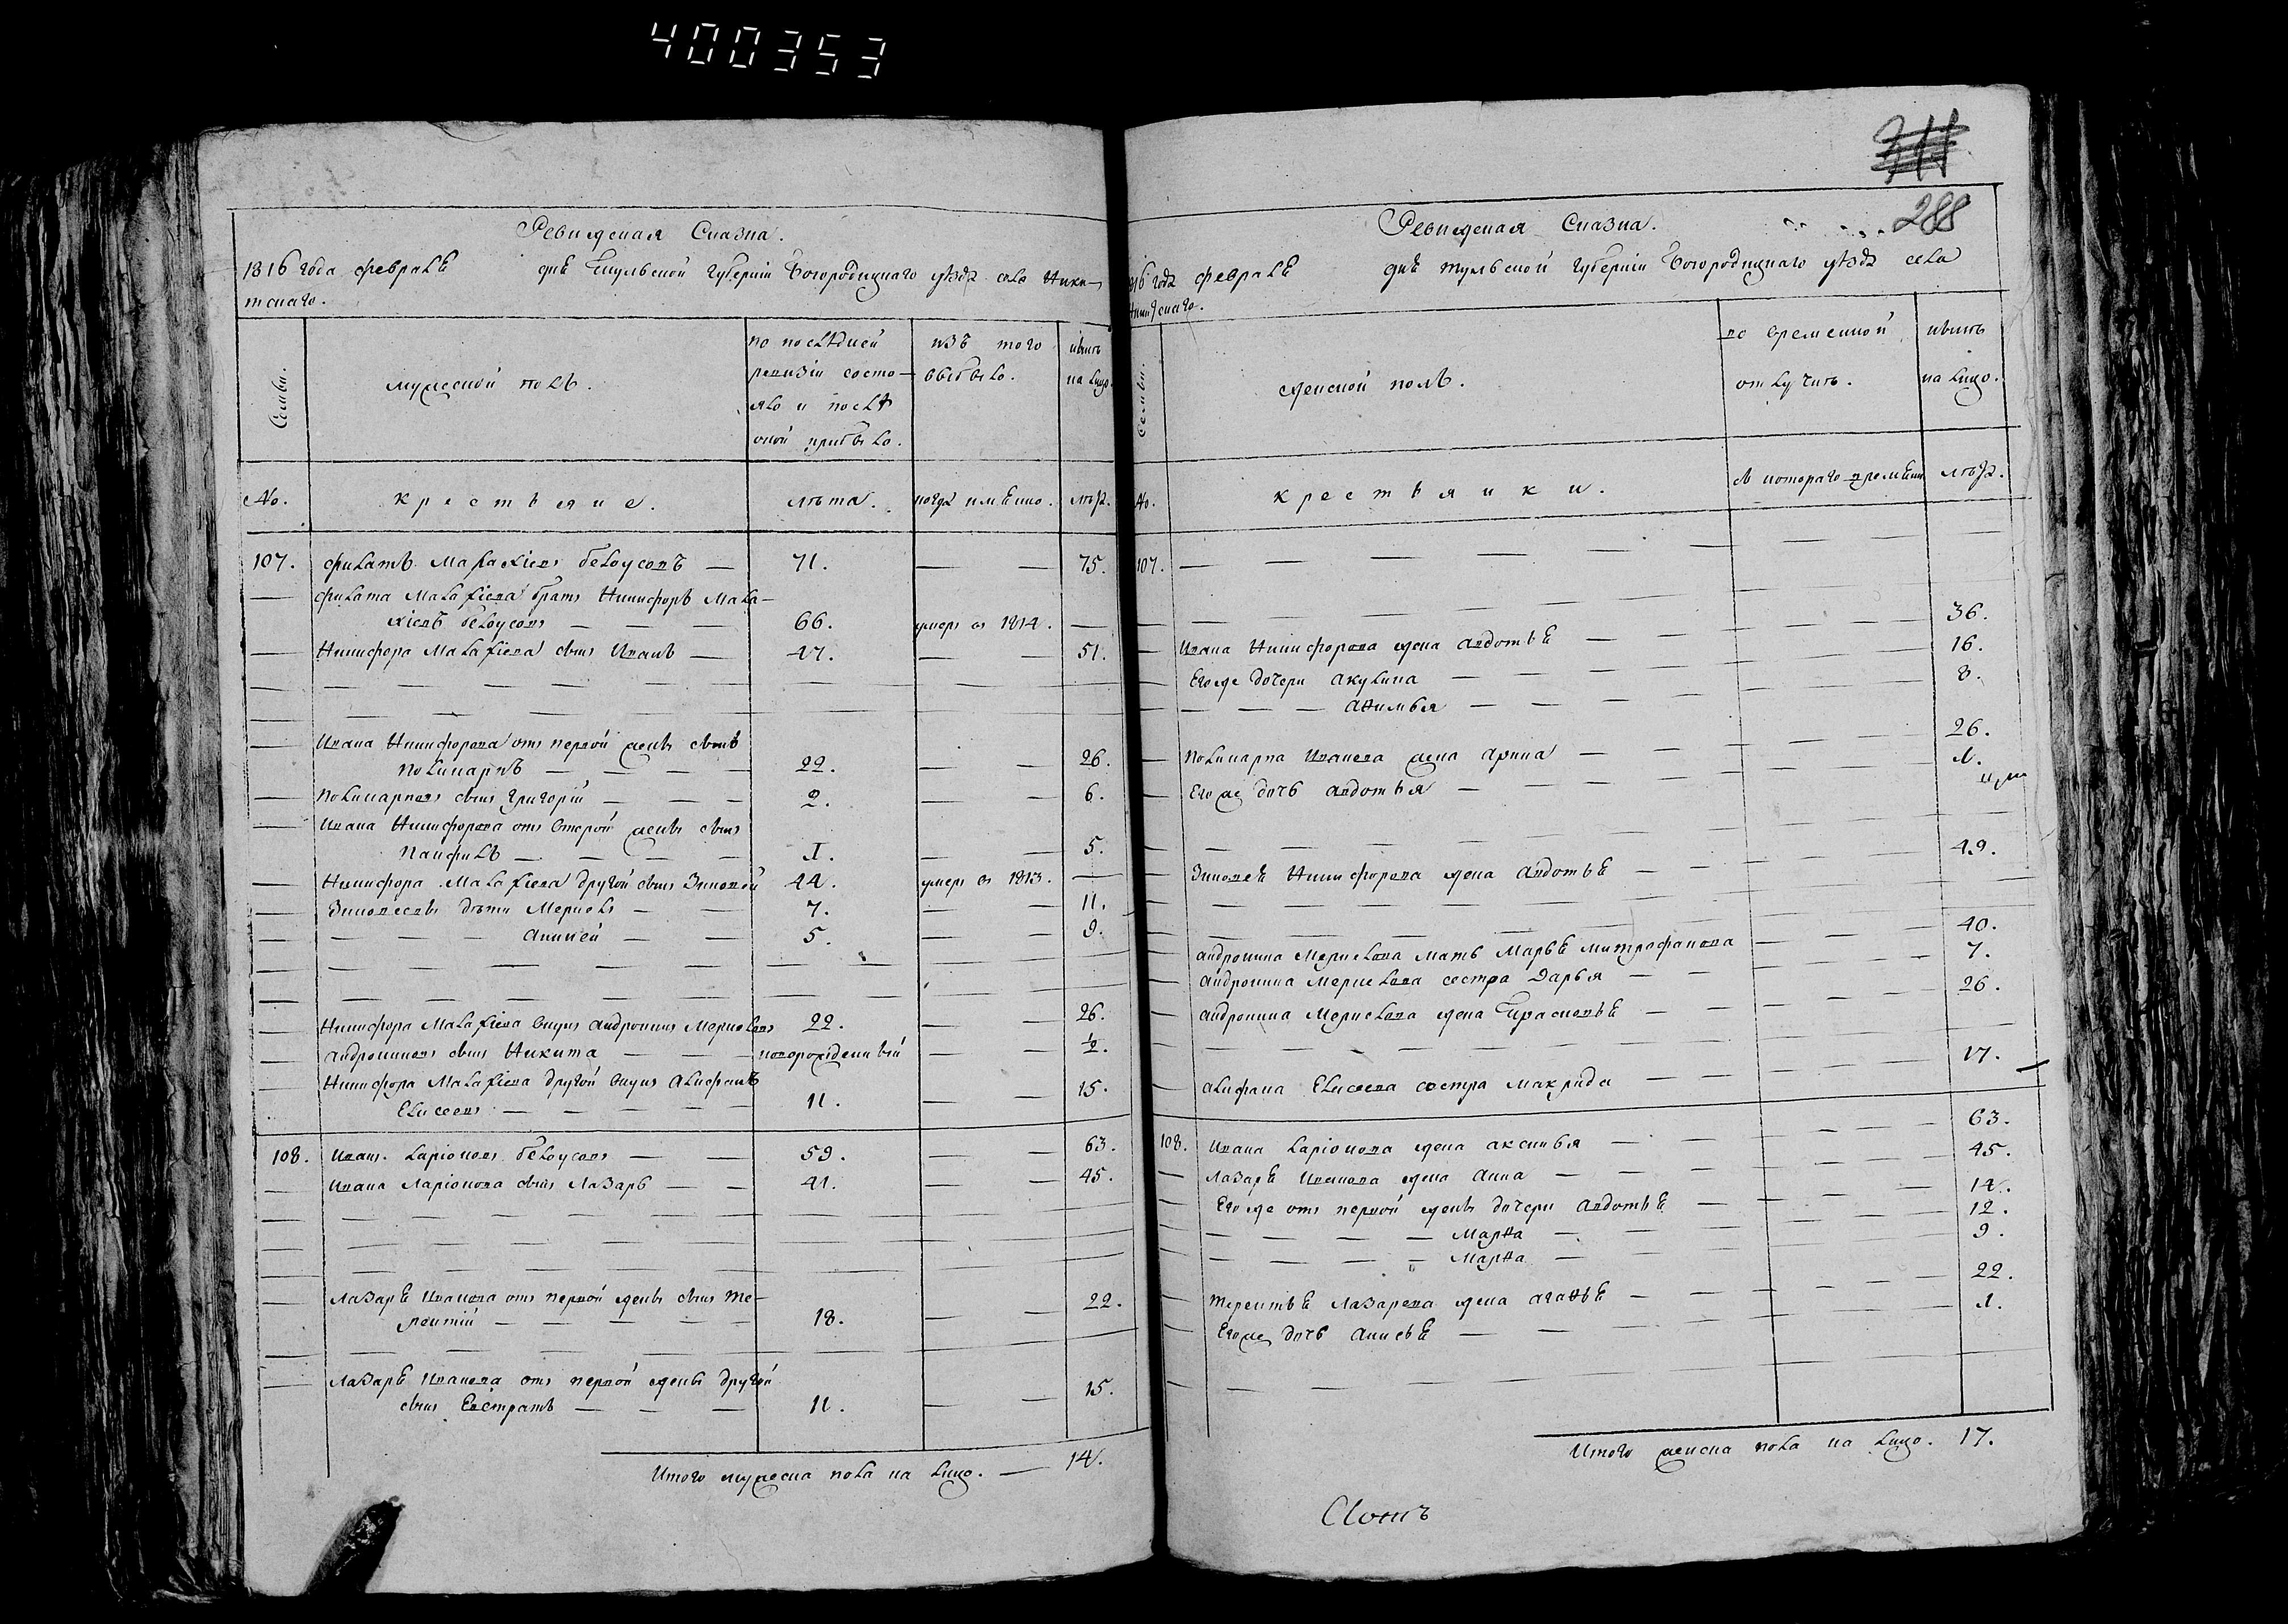 400353
Ревижская Сказка.
1816 года февраля дня Тульской губернии Богородицкаго уезда села Ники-
тскаго.
Семьи.
мужеской полъ.
по последней
ревизии состо-
яло и после
оной прибыло.
изъ того
выбыло.
ныне
на лицо.
№.
крестьяне.
лета.
когда имянно.
лета.
107. Филатъ Малахиевъ белоусовъ — 71. — — 75.
— Филата Малахиева братъ Никифоръ Мала-
хиевъ белоусовъ — — — 66. умеръ въ 1814. —
— Никифора Малахиева сынъ Иванъ — 47. — — 51.
— Ивана Никифорова отъ первой жены сынъ
Поликарпъ — — — — 22. — — 26.
— Поликарповъ сынъ Григорий — — — 2. — — 6.
— Ивана Никифорова отъ второй жены сынъ
Панфилъ — — — — 1. — — 5.
— Никифора Малахиева другой сынъ Зиновей 44. умеръ въ 1813. —
— Зиновеевы дети Меркелъ — — 7. — — 11.
— — — — Аникей — — 5. — — 9.
— Никифора Малахиева внукъ Андроникъ Меркеловъ 22. — — 26.
— Андрониковъ сынъ Никита — — — новорожденный — — ½.
— Никифора Малахиева другой внукъ Алифанъ
Елисеевъ — — — — — 11. — — 15.
108. Иванъ Ларионовъ белоусовъ — — 59. — — 63.
— Ивана Ларионова сынъ Лазарь — — 41. — — 45.
— Лазаря Иванова отъ первой жены сынъ Те-
рентий — — — — — 18. — — 22.
— Лазаря Иванова отъ первой жены другой
сынъ Евстратъ — — — 11. — — 15.
Итого мужеска пола на лицо. — 14.
288
Ревижская Сказка.
1816 года февраля дня тульской губернии Богородицкаго уезда села
Никитскаго.
Семьи.
женской полъ.
во временной
отлучке.
ныне
на лицо.
№.
крестьянки.
съ котораго времени
лета.
107. — — — — —
— Ивана Никифорова жена Авдотья — — — 36.
— Егоже дочери Акулина — — — 16.
— — — — Афимья — — — 8.
— Поликарпа Иванова жена Арина — — — 26.
— Егоже дочь Авдотья — — — 1.
— Зиновея Никифорова жена Авдотья — — 49.
— Андроника Меркелова мать Марья Митрофанова — 40.
— Андроника Меркелова сестра Дарья — — 7.
— Андроника Меркелова жена Прасковья — — 26.
— Алифана Елисеева сестра Макрида — — 17.
108. Ивана Ларионова жена Аксинья — — 63.
— Лазаря Иванова жена Анна — — 45.
— Егоже отъ первой жены дочери Авдотья — 14.
— — — — — Марфа — 12.
— — — — — Марфа — 9.
— Терентья Лазарева жена Агафья — — 22.
— Егоже дочь Анисья — — — 1.
Итого женска пола на лицо. 17.